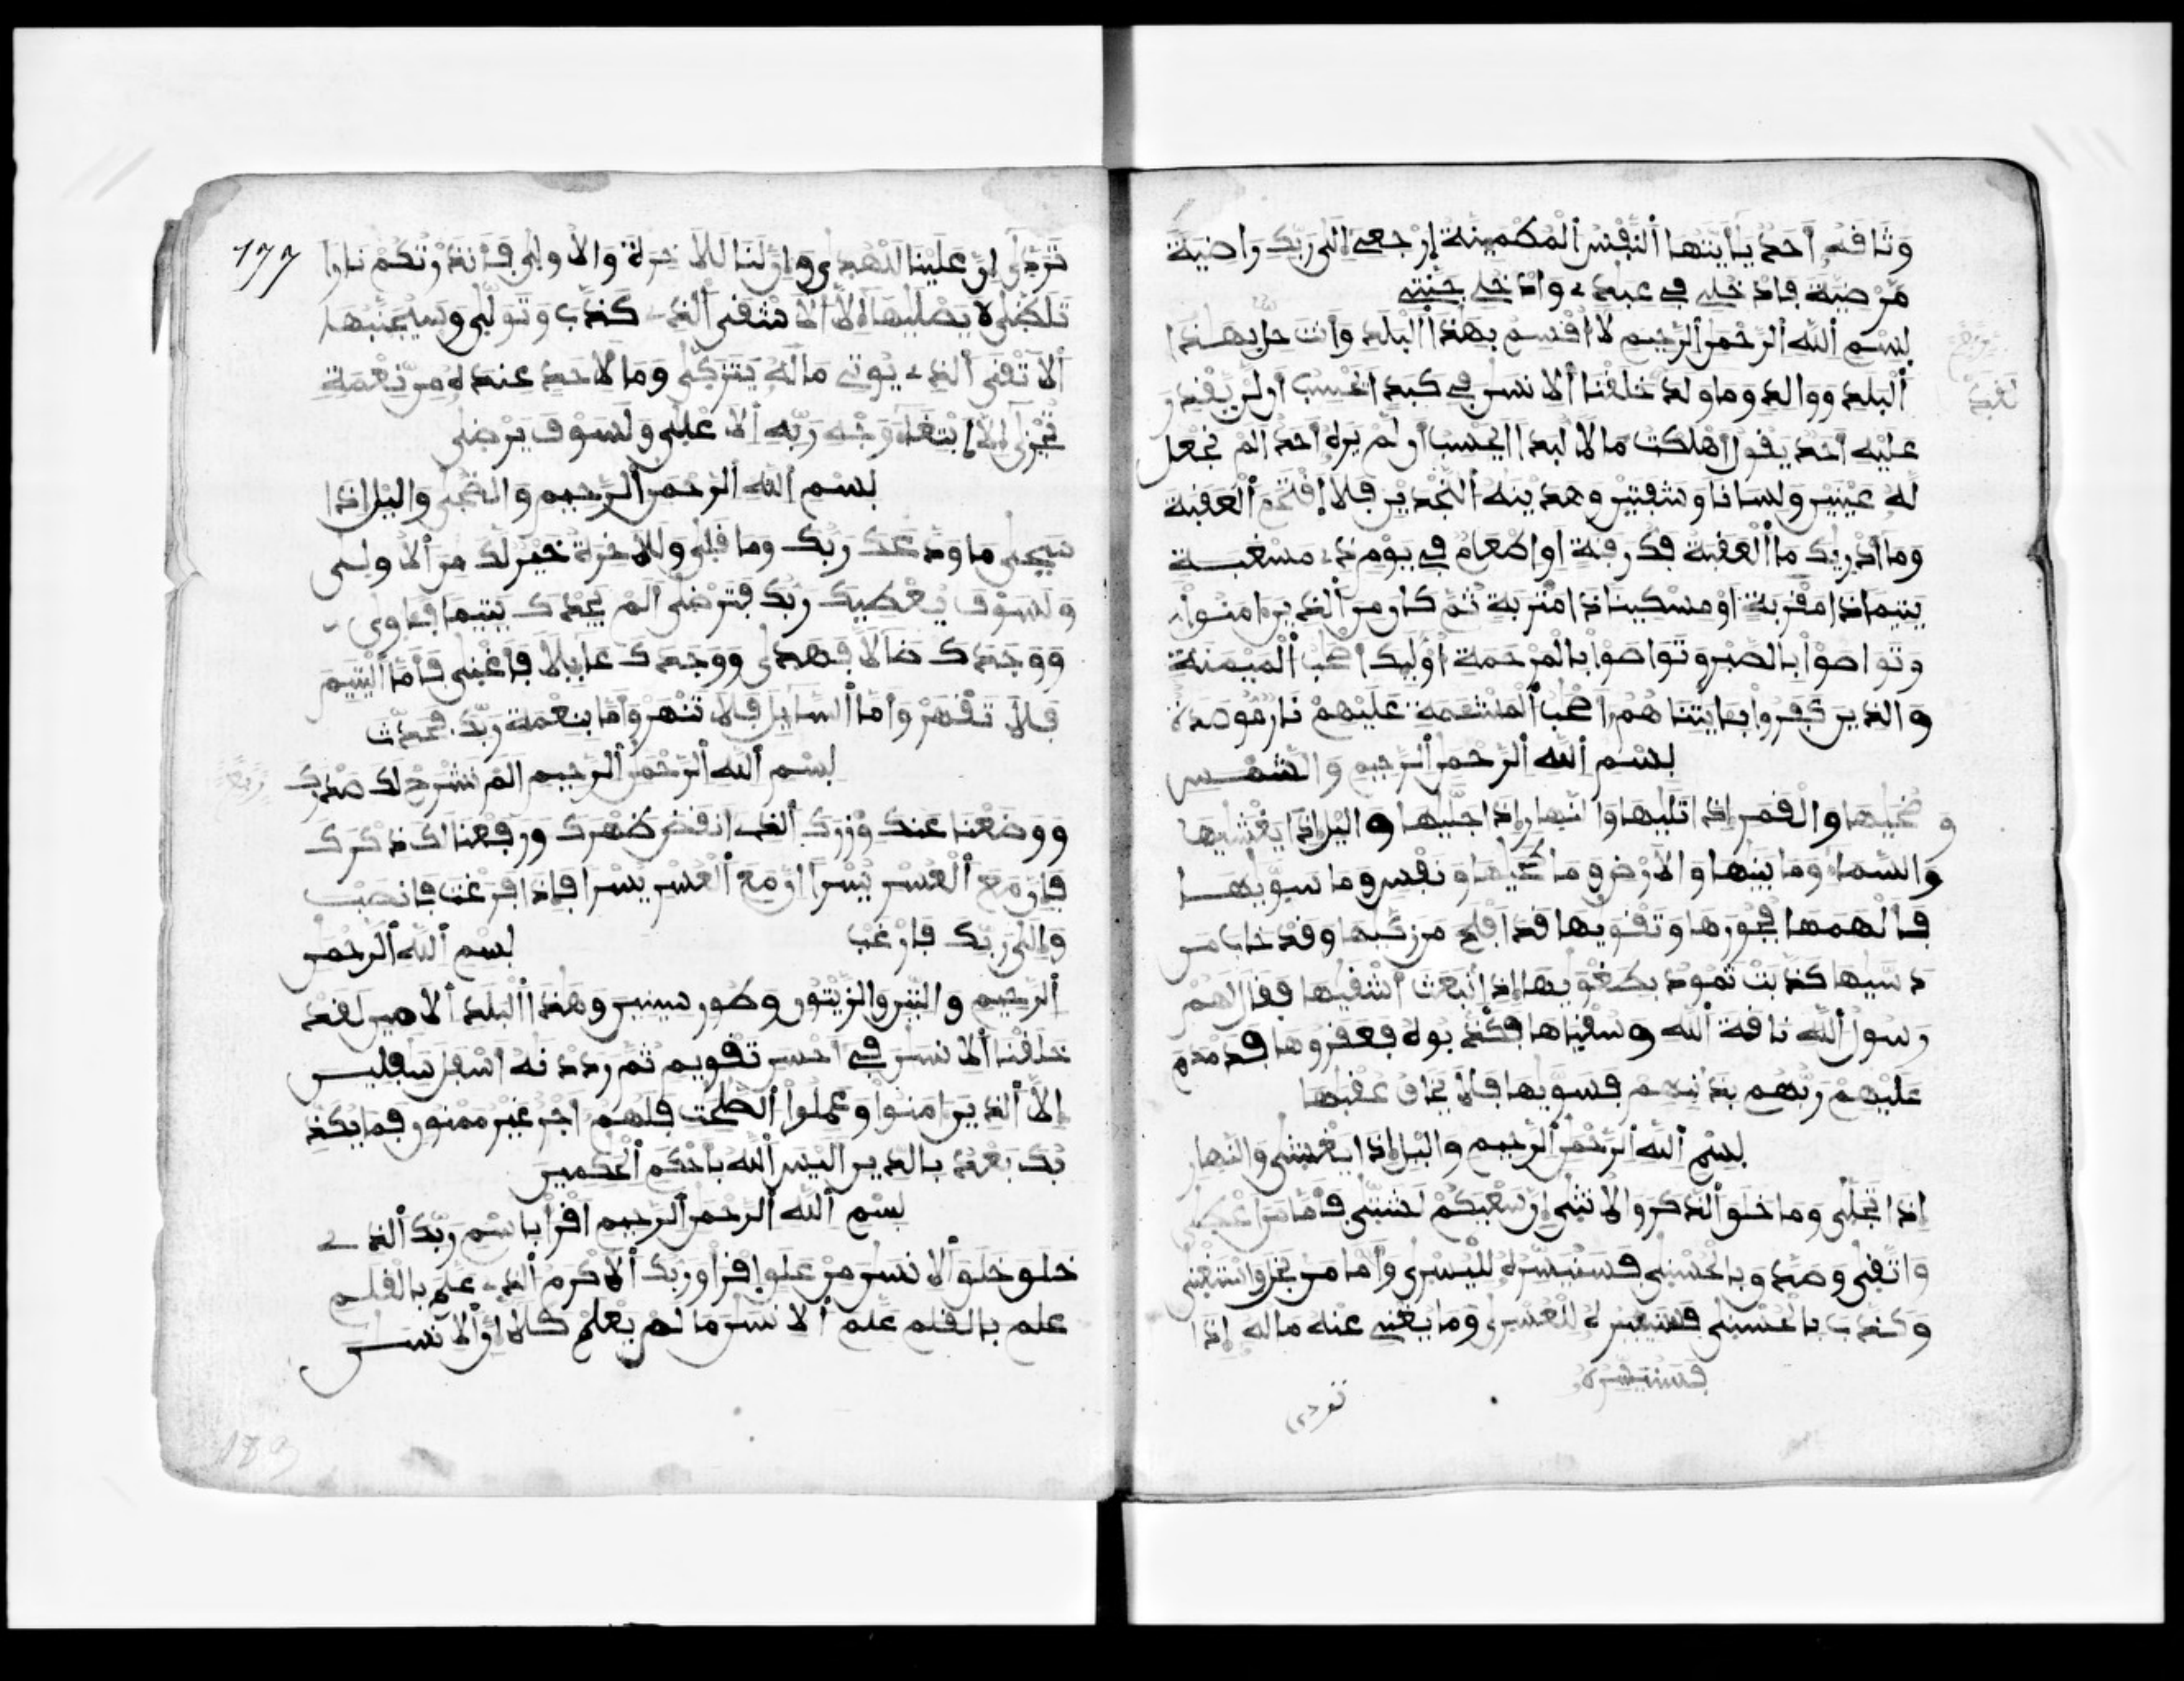 وَثَافَهُۥ أَحَدٌ يَٰأَيَّتُهَا ٱلنَّفْسُ ٱلْمُطْمَئِنَّةُ إِرْجِعِے إِلَىٰ رَبِّكِ رَاضِيَةً
مَّرْضِيَّةً فَادْخُلِے فِے عِبَٰدِے وَادْخُلِے جَنَّتِے
بِسْمِ ٱللَّهِ ٱلرَّحْمَٰنِ ٱلرَّحِيمِ لَا أُقْسِمُ بِهَٰذَا ٱلْبَلَدِ وَأَنتَ حِلٌّ بِهَٰذَا
ٱلْبَلَدِ وَوَالِدٍ وَمَا وَلَدَ خَلَقْنَا ٱلْإِنسَٰنَ فِے كَبَدٍ اَيَحْسِبُ أَن لَّنْ يَّقْدِرَ
لَقَدْ
عَلَيْهِ أَحَدٌ يَقُولُ أَهْلَكْتُ مَالًا لُّبَدًا اَيَحْسِبُ أَن لَّمْ يَرَهُۥ أَحَدٌ أَلَمْ نَجْعَل
لَّهُ عَيْنَيْنِ وَلِسَانًا وَشَفَتَيْنِ وَهَدَيْنَٰهُ ٱلنَّجْدَيْنِ فَلَا اَقْتَحَمَ ٱلْعَقَبَةَ
وَمَا أَدْرَيٰكَ مَا ٱلْعَقَبَةُ فَكُّ رَقَبَةٍ أَوِ اطْعَٰمٌ فِے يَوْمٍ ذِے مَسْغَبَةٍ
يَتِيمًا ذَا مَقْرَبَةٍ أَوْ مِسْكِينًا ذَا مَتْرَبَةٍ ثُمَّ كَانَ مِنَ ٱلذِينَ ءَامَنُواْ
وَتَوَاصَوْاْ بِالصَّبْرِ وَتَوَاصَوْاْ بِالْمَرْحَمَةِ أُوْلَٰئِكَ أَصْحَٰبُ ٱلْمَيْمَنَةِ
وَالذِينَ كَفَرُواْ بِـَٔايَٰتِنَا هُمُۥ أَصْحَٰبُ ٱلْمَشْـَٔمَةِ عَلَيْهِمْ نَارٌ مُّوصَدَةٌ
بِسْمِ ٱللَّهِ ٱلرَّحْمَٰنِ ٱلرَّحِيمِ وَالشَّمْسِ
وَضُحَيٰهَا وَالْقَمَرِ إِذَا تَلَيٰهَا وَالنَّهَارِ إِذَا جَلَّيٰهَا وَاليْلِ إِذَا يَغْشَيٰهَا
وَالسَّمَاءِ وَمَا بَنَيٰهَا وَالْأَرْضِ وَمَا طَحَيٰهَا وَنَفْسٍ وَمَا سَوَّيٰهَا
فَأَلْهَمَهَا فُجُورَهَا وَتَقْوَيٰهَا قَدْ أَفْلَحَ مَن زَكَّيٰهَا وَقَدْ خَابَ مَن
دَسَّيٰهَا كَذَّبَتْ ثَمُودُ بِطَغْوَيٰهَا إِذِ اِنۢبَعَثَ أَشْقَيٰهَا فَقَالَ لَهُمْ
رَسُولُ ٱللَّهِ نَاقَةَ ٱللَّهِ وَسُقْيَٰهَا فَكَذَّبُوهُ فَعَقَرُوهَا فَدَمْدَمَ
عَلَيْهِمْ رَبُّهُم بِذَنۢبِهِمْ فَسَوَّيٰهَا فَلَا يَخَافُ عُقْبَٰهَا
بِسْمِ ٱللَّهِ ٱلرَّحْمَٰنِ ٱلرَّحِيمِ وَاليْلِ إِذَا يَغْشَىٰ وَالنَّهَارِ
إِذَا تَجَلَّىٰ وَمَا خَلَقَ ٱلذَّكَرَ وَالْأُنثَىٰ إِنَّ سَعْيَكُمْ لَشَتَّىٰ فَأَمَّا مَنْ أَعْطَىٰ
وَاتَّقَىٰ وَصَدَّقَ بِالْحُسْنَىٰ فَسَنُيَسِّرُهُ لِلْيُسْرَىٰ وَأَمَّا مَنۢ بَخِلَ وَاسْتَغْنَىٰ
وَكَذَّبَ بِالْحُسْنَىٰ فَسَنُيَسِّرُهُ لِلْعُسْرَىٰ وَمَا يُغْنِے عَنْهُ مَالُهُ إِذَا
فَسَنُيَسِّرُهُۥ
تَرَدَّىٰ
١٧٧
تَرَدَّىٰ إِنَّ عَلَيْنَا لَلْهُدَىٰ وَإِنَّ لَنَا لَلْأَخِرَةَ وَالْأُولَىٰ فَأَنذَرْتُكُمْ نَارًا
تَلَظَّىٰ لَا يَصْلَيٰهَا إِلَّا ٱلْأَشْقَى ٱلذِے كَذَّبَ وَتَوَلَّىٰ وَسَيُجَنَّبُهَا
ٱلْأَتْقَى ٱلذِے يُوتِے مَالَهُۥ يَتَزَكَّىٰ وَمَا لِأَحَدٍ عِندَهُۥ مِن نِّعْمَةٍ
تُجْزَىٰ إِلَّا اَبْتِغَاءَ وَجْهِ رَبِّهِ ٱلْأَعْلَىٰ وَلَسَوْفَ يَرْضَىٰ
بِسْمِ ٱللَّهِ ٱلرَّحْمَٰنِ ٱلرَّحِيمِ وَالضُّحَىٰ وَاليْلِ إِذَا
سَجَىٰ مَا وَدَّعَكَ رَبُّكَ وَمَا قَلَىٰ وَلَلْأَخِرَةُ خَيْرٌ لَّكَ مِنَ ٱلْأُولَىٰ
وَلَسَوْفَ يُعْطِيكَ رَبُّكَ فَتَرْضَىٰ أَلَمْ يَجِدْكَ يَتِيمًا فَـَٔاوَىٰ
وَوَجَدَكَ ضَالًّا فَهَدَىٰ وَوَجَدَكَ عَائِلًا فَأَغْنَىٰ فَأَمَّا ٱلْيَتِيمَ
فَلَا تَقْهَرْ وَأَمَّا ٱلسَّائِلَ فَلَا تَنْهَرْ وَأَمَّا بِنِعْمَةِ رَبِّكَ فَحَدِّثْ
بِسْمِ ٱللَّهِ ٱلرَّحْمَٰنِ ٱلرَّحِيمِ أَلَمْ نَشْرَحْ لَكَ صَدْرَكَ
وَوَضَعْنَا عَنكَ وِزْرَكَ ٱلذِے أَنقَضَ ظَهْرَكَ وَرَفَعْنَا لَكَ ذِكْرَكَ
فَإِنَّ مَعَ ٱلْعُسْرِ يُسْرًا اِنَّ مَعَ ٱلْعُسْرِ يُسْرًا فَإِذَا فَرَغْتَ فَانصَبْ
وَإِلَىٰ رَبِّكَ فَارْغَب بِسْمِ ٱللَّهِ ٱلرَّحْمَٰنِ
ٱلرَّحِيمِ وَالتِّينِ وَالزَّيْتُونِ وَطُورِ سِينِينَ وَهَٰذَا ٱلْبَلَدِ ٱلْأَمِينِ لَقَدْ
خَلَقْنَا ٱلْإِنسَٰنَ فِے أَحْسَنِ تَقْوِيمٍ ثُمَّ رَدَدْنَٰهُ أَسْفَلَ سَٰفِلِينَ
إِلَّا ٱلذِينَ ءَامَنُواْ وَعَمِلُواْ ٱلصَّٰلِحَٰتِ فَلَهُمُۥ أَجْرٌ غَيْرُ مَمْنُونٍ فَمَا يُكَذِّ
بُكَ بَعْدُ بِالدِّينِ أَلَيْسَ ٱللَّهُ بِأَحْكَمِ ٱلْحَٰكِمِينَ
بِسْمِ ٱللَّهِ ٱلرَّحْمَٰنِ ٱلرَّحِيمِ اِقْرَأْ بِاسْمِ رَبِّكَ ٱلذِے
خَلَقَ خَلَقَ ٱلْإِنسَٰنَ مِنْ عَلَقٍ اِقْرَأْ وَرَبُّكَ ٱلْأَكْرَمُ ٱلذِے عَلَّمَ بِالْقَلَمِ
علم بالقلم عَلَّمَ ٱلْإِنسَٰنَ مَا لَمْ يَعْلَمْ كَلَّا إِنَّ ٱلْإِنسَٰنَ
183